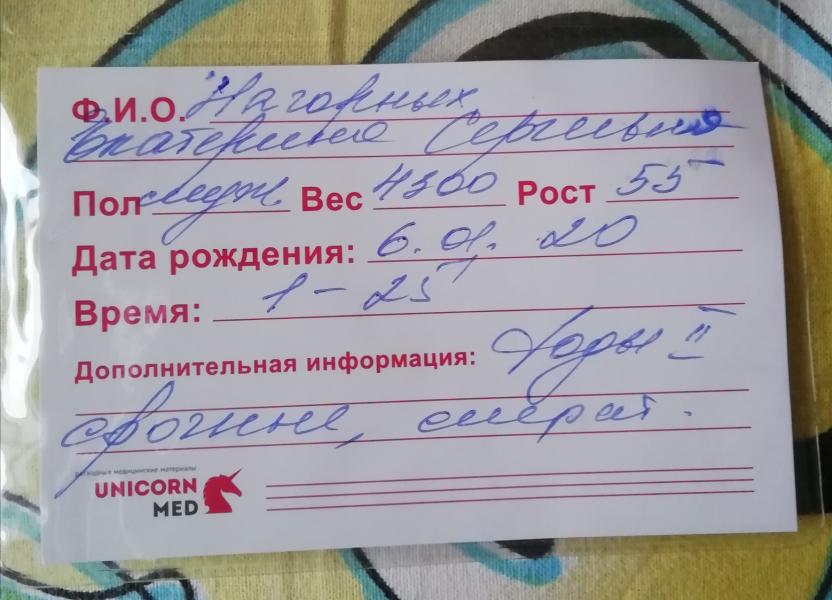 Ф.И.О. Нагорных
Екатерина Сергеевна
Пол муж. Вес 4300 Рост 55
Дата рождения: 6.01.20
Время: 1-25
Дополнительная информация: Роды II
срочные, операт.
расходные медицинские материалы
UNICORN
MED